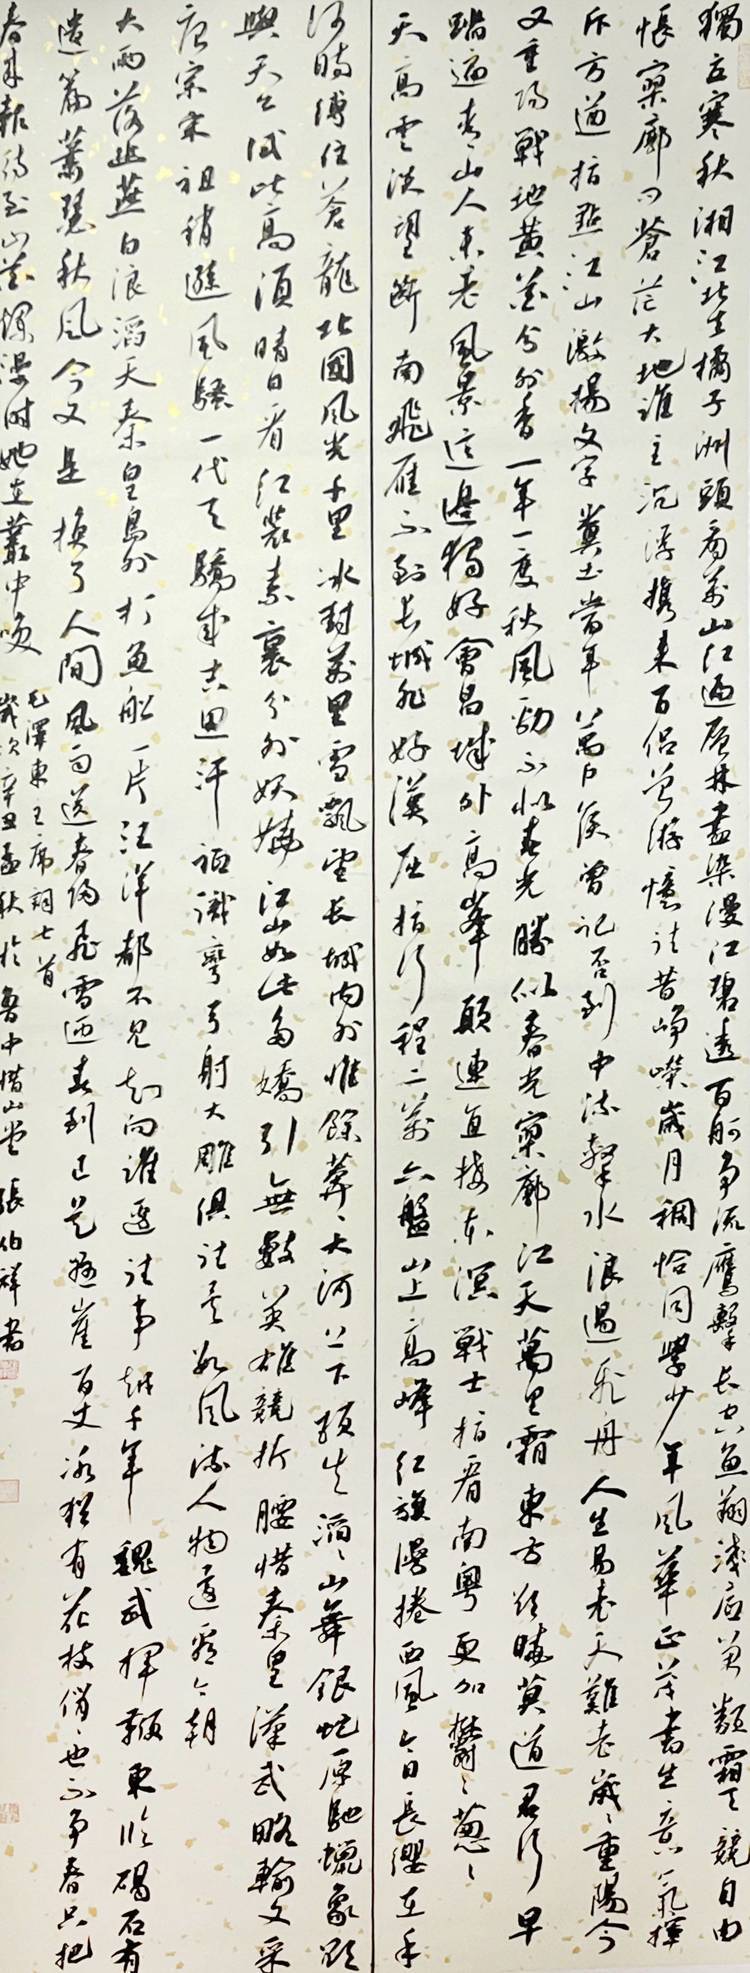 獨立寒秋湘江北去橘子洲頭看萬山紅遍層林盡染漫江碧透百舸爭流鷹擊長空魚翔淺底萬類霜天競自由
悵寥廓問蒼茫大地誰主沉浮攜來百侶曾游憶往昔崢嶸歲月稠恰同學少年風華正茂書生意氣揮
斥方遒指點江山激揚文字糞土當年萬戶侯曾記否到中流擊水浪遏飛舟人生易老天難老歲歲重陽今
又重陽戰地黃花分外香一年一度秋風勁不似春光勝似春光寥廓江天萬里霜東方欲曉莫道君行早
踏遍青山人未老風景這邊獨好會昌城外高峰顛連直接東溟戰士指看南粵更加鬱鬱蔥蔥
天高雲淡望斷南飛雁不到長城非好漢屈指行程二萬六盤山上高峰紅旗漫捲西風今日長纓在手
何時縛住蒼龍北國風光千里冰封萬里雪飄望長城內外惟餘莽莽大河上下頓失滔滔山舞銀蛇原馳蠟象欲
與天公試比高須晴日看紅裝素裹分外妖嬈江山如此多嬌引無數英雄競折腰惜秦皇漢武略輸文采
唐宗宋祖稍遜風騷一代天驕成吉思汗祗識彎弓射大雕俱往矣數風流人物還看今朝
大雨落幽燕白浪滔天秦皇島外打魚船一片汪洋都不見知向誰邊往事越千年魏武揮鞭東臨碣石有
遺篇蕭瑟秋風今又是換了人間風雨送春歸飛雪迎春到已是懸崖百丈冰猶有花枝俏俏也不爭春只把
春來報待到山花爛漫時她在叢中笑
毛澤東主席詞七首
歲次辛丑孟秋於魯中惜山堂張伯祥書